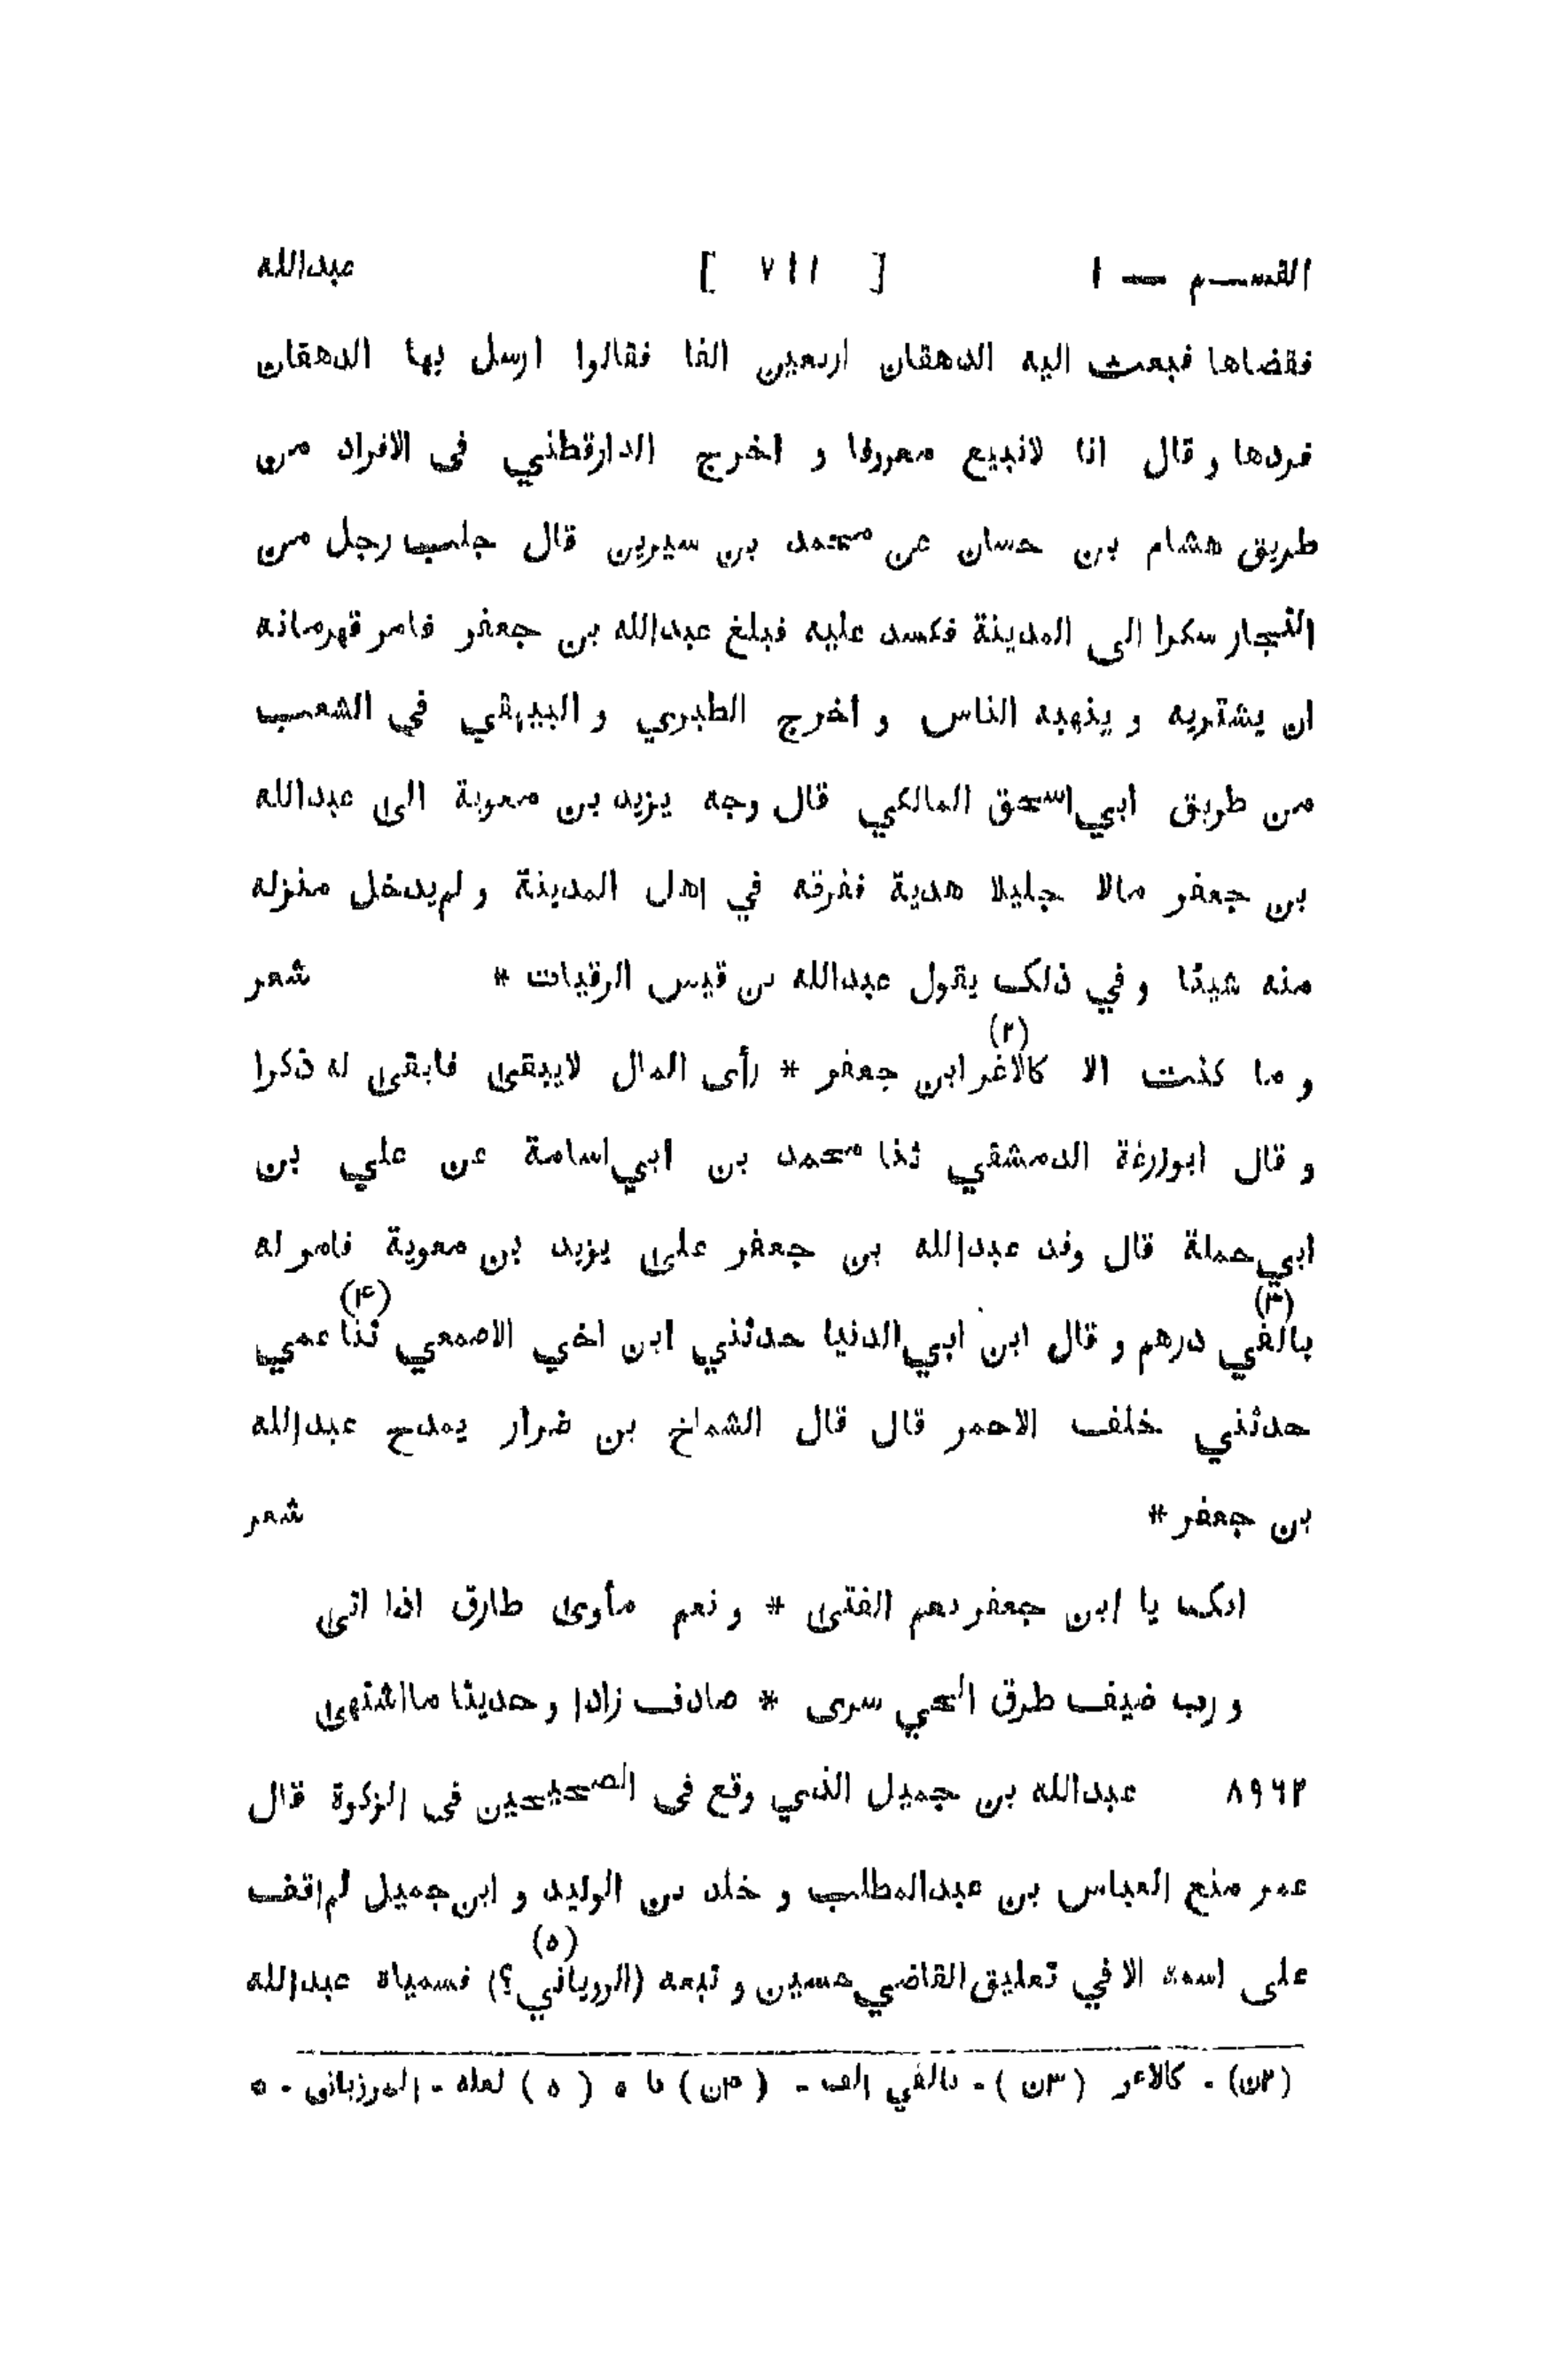 القسم — ١ [ ٧١١ ] عبدالله
فقضاها فبعث اليه الدهقان اربعين الفا فقالوا ارسل بها الدهقان
فردها و قال انا لانبيع معروفا و اخرج الدارقطني فى الافراد من
طريق هشام بن حسان عن محمد بن سيرين قال جلب رجل من
التجار سكرا الى المدينة فكسد عليه فبلغ عبدالله بن جعفر فامر قهرمانه
ان يشتريه و ينهبه الناس و اخرج الطبري و البيهقي في الشعب
من طريق ابي اسحق المالكي قال وجه يزيد بن معوية الى عبدالله
بن جعفر مالا جليلا هدية ففرقه في اهل المدينة و لم يدخل منزله
منه شيئا و في ذلك يقول عبدالله بن قيس الرقيات * شعر
و ما كنت الا كالاغر (٢) ابن جعفر * رأى المال لايبقى فابقى له ذكرا
و قال ابوزرعة الدمشقي ثنا محمد بن ابي اسامة عن علي بن
ابي حملة قال وفد عبدالله بن جعفر على يزيد بن معوية فامر له
بالفي (٣) درهم و قال ابن ابي الدنيا حدثني ابن اخي الاصمعي ثنا (۴) عمي
حدثني خلف الاحمر قال قال الشماخ بن ضرار يمدح عبدالله
بن جعفر * شعر
انكما يا ابن جعفر نعم الفتى * و نعم مأوى طارق اذا اتى
و رب ضيف طرق الحي سرى * صادف زادا و حديثا ما اشتهى
٨٩٦٢ عبدالله بن جميل الذي وقع فى الصحيحين فى الزكوة قال
عمر منع العباس بن عبدالمطلب و خلد بن الوليد و ابن جميل لم اقف
على اسمه الا في تعليق القاضي حسين و تبعه (الروياني؟) (٥) فسمياه عبدالله
(٢ن) - كالاعر (٣ن) - بالفي الف - (۴ن) نا ٥ (٥) لعله - المرزبانى - ٥